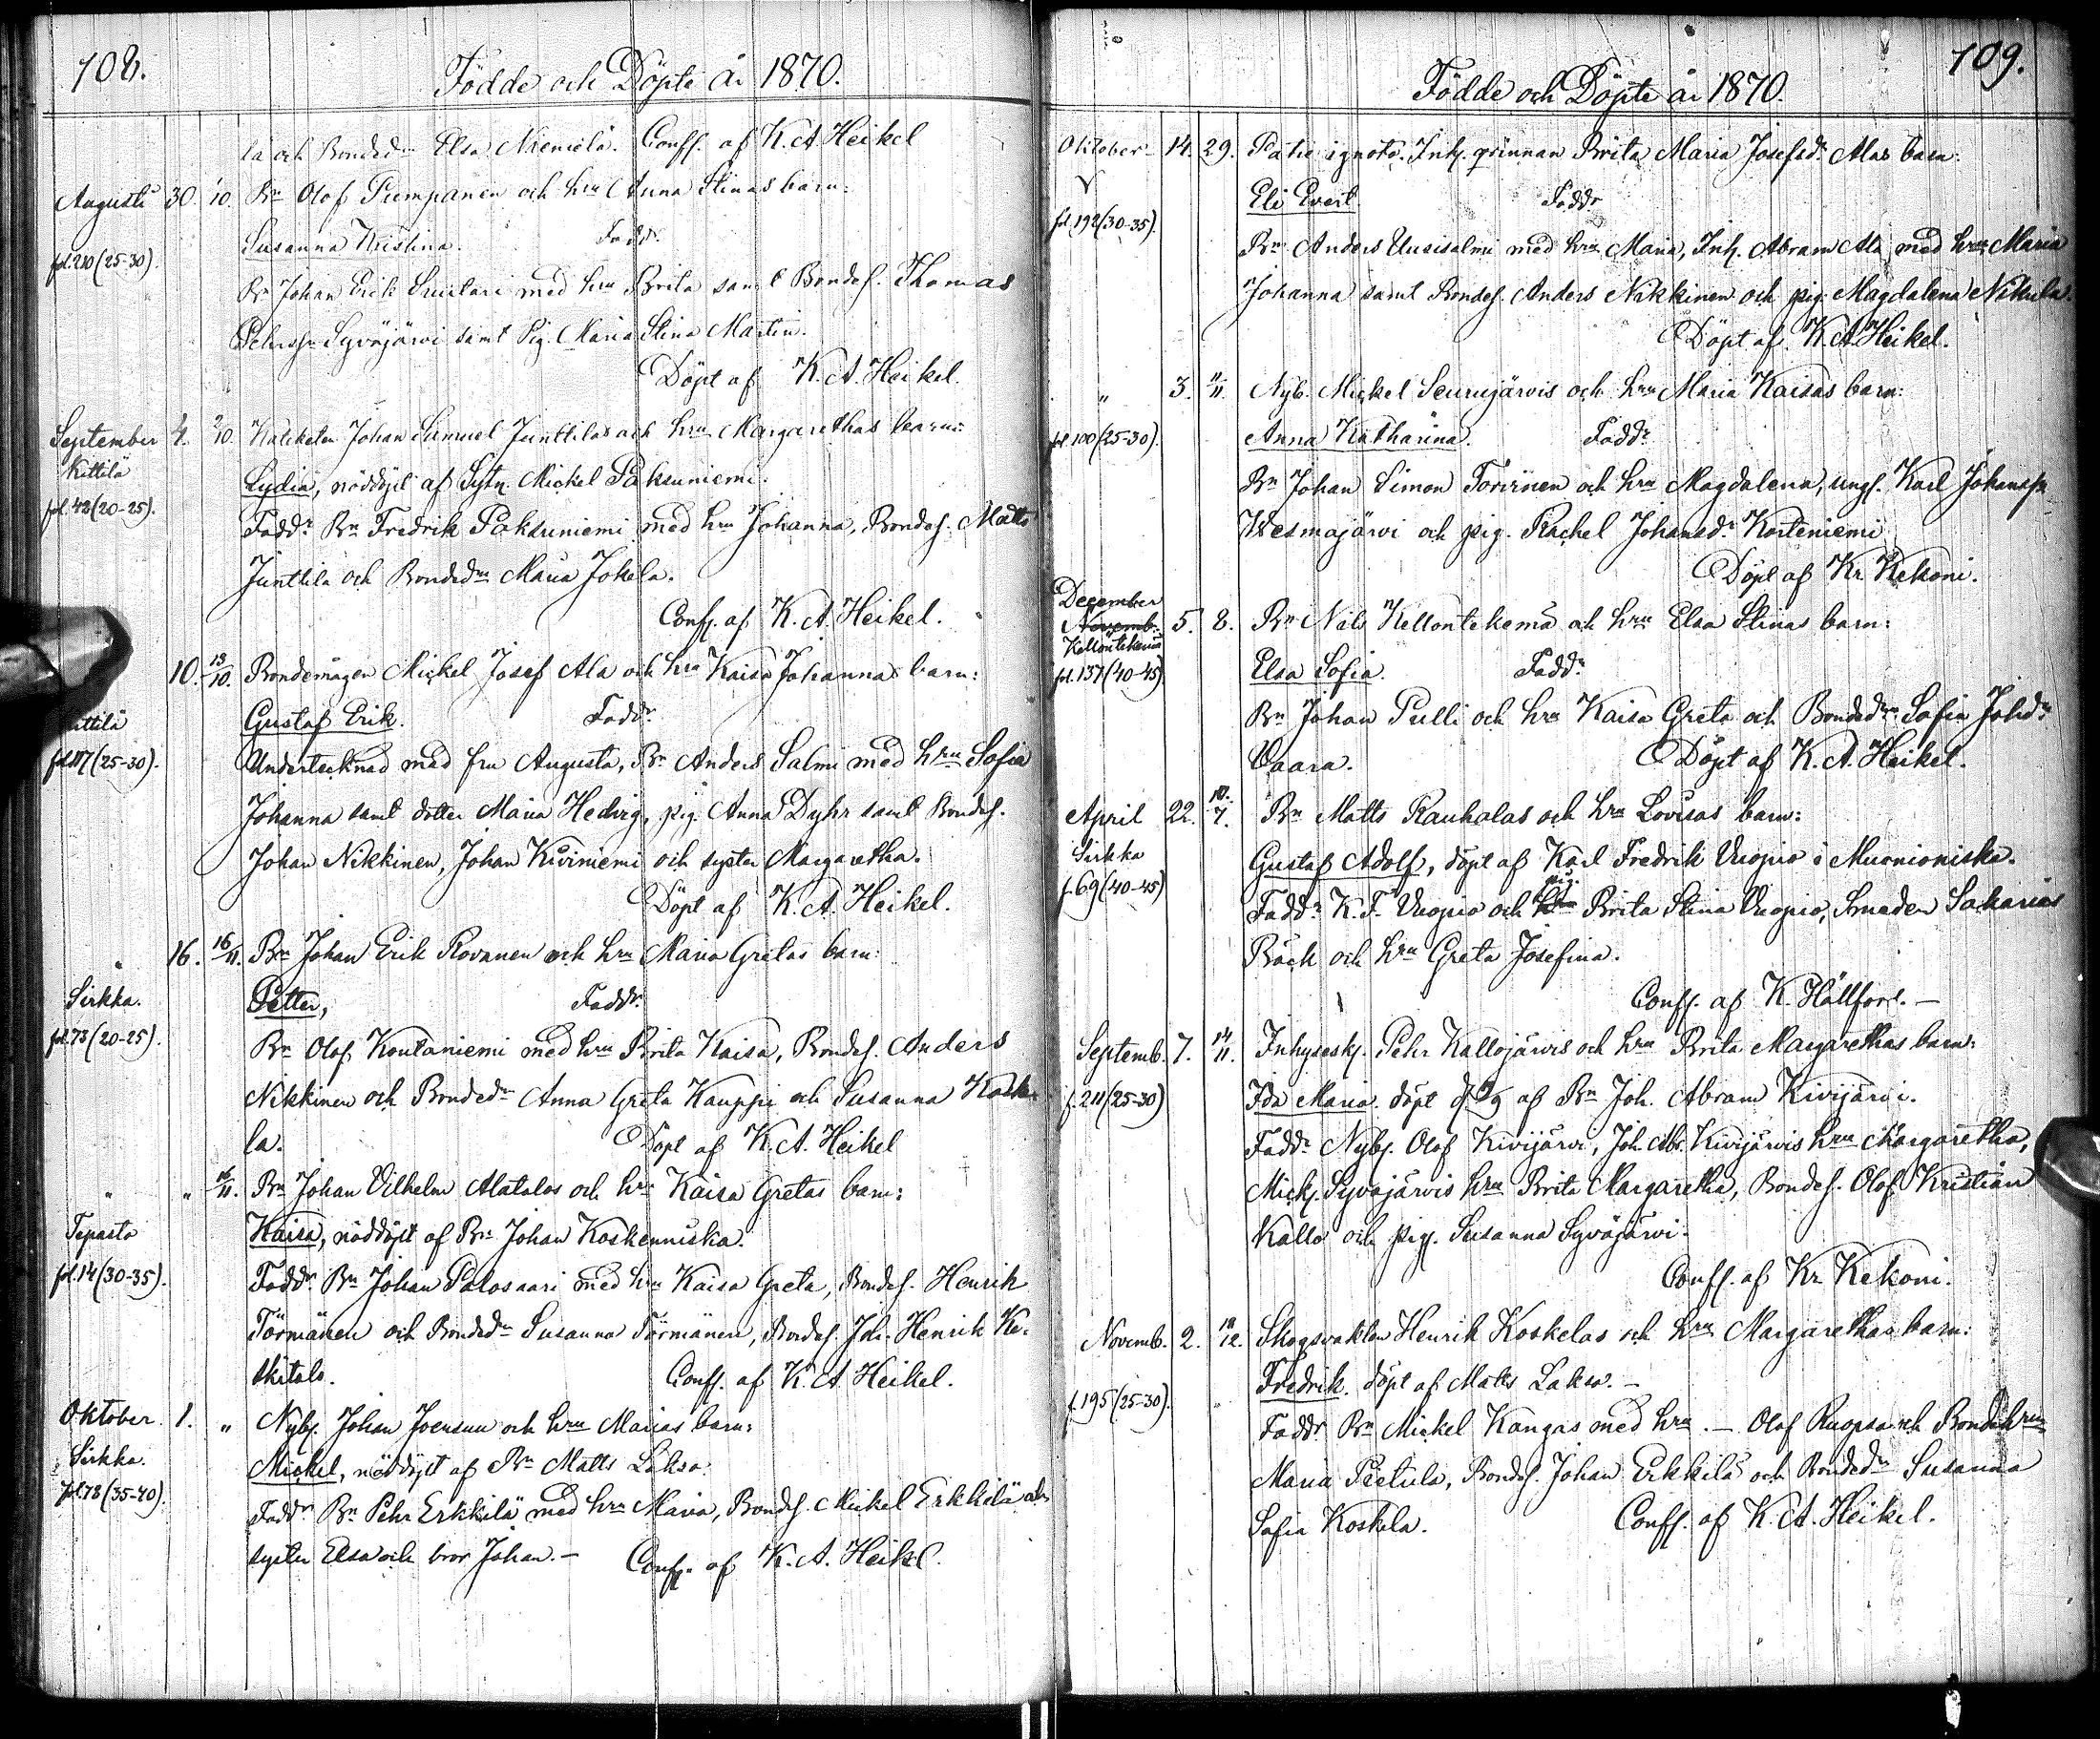 108.
Födde och Döpte år 1870.
la och Bondedr Elsa Niemelä. Conff. af K. A. Heikel
Augusti 30. 1/10. Bn Olof Pumpanen och hru Anna Stinas barn:
Susanna Kristina. Faddr
fol.210 (25-30).
Bn Johan Erik med hru Brita samt Bondes. Thomas
Pehrsson Syväjärvi samt Pig. Maria Stina Martin.
Döpt af K. A. Heikel.
September 4. 2/10. Kateketen Johan Samuel Junttilas och hru Margarethas barn:
Kittilä
Lydia, nöddöpt af Sytn. Mickel Paksuniemi.
fol.42 (20-25).
Faddr Bn Fredrik Paksuniemi med hru Johanna, Bondes. Matts
Junttila och Bondedr Maria Jokela.
Conff. af K. A. Heikel.
10. 13/10. Bondemågen Mickel Josef Ala och hru Kaisa Johannas barn:
Kittilä
Gustaf Erik. Faddr
fol.117 (25-30).
Undertecknad med fru Augusta, Bn Anders Salmi med hru Sofia
Johanna samt dotter Maria Hedvig, pig. Anna Dyhr samt Bondes.
Johan Nikkinen, Johan Kiviniemi och syster Margaretha.
Döpt af K. A. Heikel.
" 16. 16/11. Bn Johan Erik Rovanen och hru Maria Gretas barn:
Sirkka.
Petter, Faddr
fol.73 (20-25).
Bn Olof Koutaniemi med hru Brita Kaisa, Bondes. Anders
Nikkinen och Bondedr Anna Greta Kauppi och Susanna Koske-
la. Döpt af K. A. Heikel
" " 16/11. Bn Johan Vilhelm Alatalos och hru Kaisa Gretas barn:
Tepasto
Kaisa, nöddöpt af Bn Johan Koskenniska.
fol.14 (30-35).
Faddr Bn Johan Palosaari med hru Kaisa Greta, Bondes. Henrik
Törmänen och Bondedr Susanna Törmänen, Bondes. Joh. Henrik Ke-
skitalo. Conff. af K. A. Heikel.
Oktober. 1. " Nybs. Johan Joensuu och hru Marias barn:
Sirkka.
Mickel, nöddöpt af Bn Matts Lakso.
fol.78 (35-40).
Faddr Bn Pehr Erkkilä med hru Maria, Bondes. Mickel Erkkilä och
syster Elsa och bror Johan. — Conff. af K. A. Heikel.
109.
Födde och Döpte år 1870.
Oktober 14. 29. Patre ignoto. Inh. qvinnan Brita Maria Josefsdr Alas barn:
Eli Evert. Faddr
fol.192 (30-35).
Bn Anders Uusisalmi med hru Maria, Inh. Abram Ala med hru Maria
Johanna samt Bondes. Anders Nikkinen och pig. Magdalena Nikula.
Döpt af K. A. Heikel.
" 3. 11/11. Nyb. Mickel Seurujärvis och hru Maria Kaisas barn:
fol.100 (25-30).
Anna Katharina. Faddr
Bn Johan Simon Torvinen och hru Magdalena, ungk. Karl Johansson
Vesmajärvi och pig. Rachel Johansdr Korteniemi
Döpt af Kr. Kekoni.
December
Novemb. 5. 8. Bn Nils Kellontekemä och hru Elsa Stinas barn:
Kellontekemä
fol.137 (40-45)
Elsa Sofia. Faddr
Bn Johan Pulli och hru Kaisa Greta och Bondedr Sofia Johdr
Vaara. Döpt af K. A. Heikel.
April 22. 10./7. Bn Matts Rauhalas och hru Lovisas barn:
Sirkka
Gustaf Adolf, döpt af Karl Fredrik Vuopio i Muonioniska.
f.69 (40-45)
Faddr K. F. Vuopio och pig. Brita Stina Vuopio, Smeden Sakarias
Bäck och hru Greta Josefina.
Conff. af K. Hällfors. —
Septemb. 7. 14/11. Inhysesk. Pehr Kallojärvis och hru Brita Margarethas barn:
f.211 (25-30)
Ida Maria. döpt d. /9 af Bn Joh. Abram Kivijärvi.
Faddr Nybs. Olof Kivijärvi, Joh. Abr. Kivijärvis hru Margaretha,
Mick. Syväjärvis hru Brita Margaretha, Bondes. Olof Kristian
Kallo och pig. Susanna Syväjärvi.
Conff. af Kr. Kekoni.
Novemb. 2. 18/12. Skogsvakten Henrik Koskelas och hru Margarethas barn:
Fredrik. döpt af Matts Lakso. —
f.195 (25-30).
Faddr Bn Mickel Kangas med hru. — Olof Ruopsa och Bondehru
Maria Pietula, Bondes. Johan Erkkilä och Bondedr Susanna
Sofia Koskela. Conff. af K. A. Heikel.